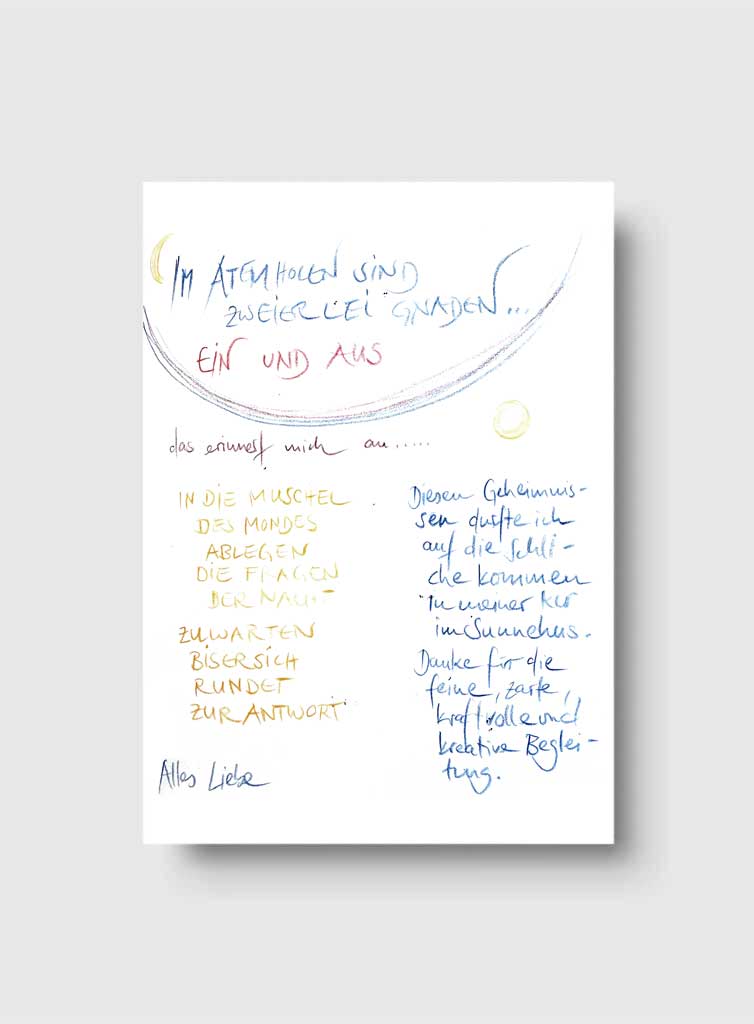 IM ATEMHOLEN SIND
ZWEIERLEI GNADEN...
EIN UND AUS
das erinnert mich an.....
IN DIE MUSCHEL
DES MONDES
ABLEGEN
DIE FRAGEN
DER NACHT
ZUWARTEN
BIS ER SICH
RUNDET
ZUR ANTWORT
Alles Liebe
Diesen Geheimnis-
sen durfte ich
auf die Schli-
che kommen
in meiner Kur
im Sunnehus.
Danke für die
feine, zarte,
kraftvolle und
kreative Beglei-
tung.